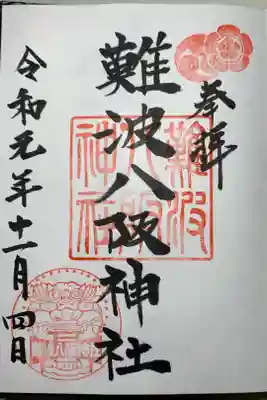 奉拝
難波八阪神社
令和元年十一月四日
難波
八阪
神社